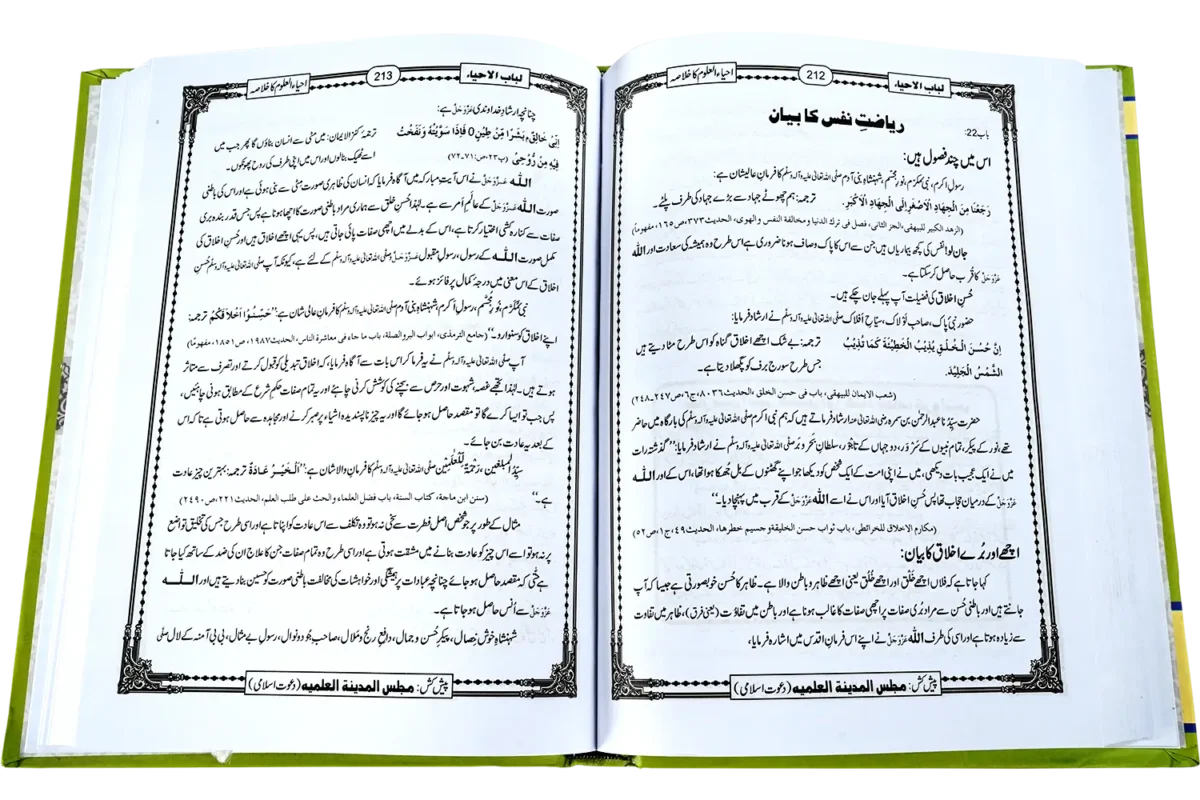 لباب الاحیاء
212
احیاء العلوم کا خلاصہ
باب22:
ریاضتِ نفس کا بیان
اس میں چند فصول ہیں:
رسولِ اکرم، نبی مکرم، نورِ مجسَّم، شہنشاہِ بنی آدم صلی اللہ تعالیٰ علیہ وآلہ وسلم کا فرمانِ عالیشان ہے:
رَجَعْنَا مِنَ الْجِهَادِ الْاَصْغَرِ اِلَی الْجِهَادِ الْاَكْبَرِ. ترجمہ: ہم چھوٹے جہاد سے بڑے جہاد کی طرف پلٹے۔
(الزهد الكبير للبيهقى، الجز الثانى، فصل فى ترك الدنيا و مخالفة النفس والهوى، الحديث۳۷۳، ص۱٦۵، مفهوماً)
جان لو! نفس کی کچھ بیماریاں ہیں جن سے اس کا پاک و صاف ہونا ضروری ہے اس طرح وہ ہمیشہ کی سعادت اور اللہ
عَزَّوَجَلَّ کا قُرب حاصل کر سکتا ہے۔
حُسنِ اخلاق کی فضیلت آپ پہلے جان چکے ہیں۔
حضور نبی پاک، صاحبِ لَوْلاک، سیّاحِ اَفلاک صلی اللہ تعالیٰ علیہ وآلہ وسلم نے ارشاد فرمایا:
اِنَّ حُسْنَ الْخُلُقِ يُذِيْبُ الْخَطِيْئَةَ كَمَا تُذِيْبُ ترجمہ: بے شک اچھے اخلاق گناہ کو اس طرح مٹا دیتے ہیں
الشَّمْسُ الْجَلِيْدَ. جس طرح سورج برف کو پگھلا دیتا ہے۔
(شعب الايمان للبيهقى، باب فى حسن الخلق، الحديث۸۰۳٦، ج٦، ص۲٤۷۔۲٤۸)
حضرت سیِّدُنا عبدالرحمٰن بن سمرہ رضی اللہ تعالیٰ عنہ ارشاد فرماتے ہیں کہ ہم نبی اکرم صلی اللہ تعالیٰ علیہ وآلہ وسلم کی بارگاہ میں حاضر
تھے نور کے پیکر، تمام نبیوں کے سَرْوَر، دو جہاں کے تاجْوَر، سلطانِ بَحر و بَر صلی اللہ تعالیٰ علیہ وآلہ وسلم نے ارشاد فرمایا: ’’گذشتہ رات
میں نے ایک عجیب بات دیکھی، میں نے اپنی امت کے ایک شخص کو دیکھا جو اپنے گھٹنوں کے بل جُھکا ہوا تھا، اس کے اور اللہ
عَزَّوَجَلَّ کے درمیان حجاب تھا پس حُسنِ اخلاق آیا اور اس نے اسے اللہ عَزَّوَجَلَّ کے قُرب میں پہنچا دیا۔‘‘
(مكارم الاخلاق للخرائطى، باب ثواب حسن الخليقة وجسيم خطرها، الحديث٤۹، ج۱، ص۵۲)
اچھے اور بُرے اخلاق کا بیان:
کہا جاتا ہے کہ فلاں اچھے خَلق اور اچھے خُلق یعنی اچھے ظاہر و باطن والا ہے۔ ظاہر کا حُسن خوبصورتی ہے جیسا کہ آپ
جانتے ہیں اور باطنی حُسن سے مراد بُری صفات پر اچھی صفات کا غالب ہونا ہے اور باطن میں تفاوُت (یعنی فرق)، ظاہر میں تفاوت
سے زیادہ ہوتا ہے اور اسی کی طرف اللہ عَزَّوَجَلَّ نے اپنے اس فرمانِ اقدس میں اشارہ فرمایا،
پیش کش: مجلس المدینۃ العلمیہ (دعوت اسلامی)
لباب الاحیاء
213
احیاء العلوم کا خلاصہ
چنانچہ ارشادِ خداوندی عَزَّوَجَلَّ ہے:
اِنِّیْ خَالِقٌۢ بَشَرًا مِّنْ طِيْنٍ0 فَاِذَا سَوَّيْتُهٗ وَنَفَخْتُ ترجمۂ کنز الایمان: میں مٹی سے انسان بناؤں گا پھر جب میں
فِيْهِ مِنْ رُّوْحِیْ (پ۲۳، ص:۷۱۔۷۲) اسے ٹھیک بنالوں اور اس میں اپنی طرف کی روح پھونکوں۔
اللہ عَزَّوَجَلَّ نے اس آیتِ مبارکہ میں آگاہ فرمایا کہ انسان کی ظاہری صورت مٹی سے بنی ہوئی ہے اور اس کی باطنی
صورت اللہ عَزَّوَجَلَّ کے عالمِ اَمر سے ہے۔ لہٰذا حُسنِ خلق سے ہماری مراد باطنی صورت کا اچھا ہونا ہے پس جس قدر بندہ بری
صفات سے کنارہ کشی اختیار کرتا ہے، اس کے بدلے میں اچھی صفات پائی جاتی ہیں، پس یہی اچھے اخلاق ہیں اور حُسنِ اخلاق کی
مکمل صورت اللہ کے رسول، رسولِ مقبول عَزَّوَجَلَّ و صلی اللہ تعالیٰ علیہ وآلہ وسلم کے لئے ہے، کیونکہ آپ صلی اللہ تعالیٰ علیہ وآلہ وسلم حُسنِ
اخلاق کے اس معنی میں درجۂ کمال پر فائز ہوئے۔
نبی مُکَرَّم، نورِ مجسَّم، رسولِ اکرم، شہنشاہِ بنی آدم صلی اللہ تعالیٰ علیہ وآلہ وسلم کا فرمانِ عالی شان ہے: ’’حَسِّنُوْا اَخْلَاقَكُمْ ترجمہ:
اپنے اخلاق کو سنوارو۔‘‘ (جامع الترمذى، ابواب البر والصلة، باب ما جاء فى معاشرة الناس، الحديث۱۹۸۷، ص۱۸۵۱، مفهومًا)
آپ صلی اللہ تعالیٰ علیہ وآلہ وسلم نے یہ فرما کر اس بات سے آگاہ فرمایا، کہ اخلاق تبدیلی کو قبول کرتے اور تصرف سے متاثر
ہوتے ہیں۔ لہٰذا تجھے غصہ، شہوت اور حرص سے بچنے کی کوشش کرنی چاہئے اور یہ تمام صفات حکمِ شرع کے مطابق ہونی چاہئیں،
پس جب تو ایسا کرے گا تو مقصد حاصل ہو جائے گا اور یہ چیز ناپسندیدہ اشیاء پر صبر کرنے اور مجاہدہ سے حاصل ہوتی ہے تا کہ اس
کے بعد یہ عادت بن جائے۔
سیِّدُ المبلغین، رَحْمَۃٌ لِّلْعٰلَمِیْن صلی اللہ تعالیٰ علیہ وآلہ وسلم کا فرمانِ والا شان ہے: ’’اَلْخَيْرُ عَادَةٌ ترجمہ: بہترین چیز عادت
ہے۔‘‘ (سنن ابن ماجة، كتاب السنة، باب فضل العلماء والحث على طلب العلم، الحديث۲۲۱، ص۲٤۹۰)
مثال کے طور پر جو شخص اصل فطرت سے سخی نہ ہو تو وہ تکلف سے اس عادت کو اپناتا ہے اور اسی طرح جس کی تخلیق تواضع
پر نہ ہو تو اسے اس چیز کو عادت بنانے میں مشقت ہوتی ہے اور اسی طرح وہ تمام صفات جن کا علاج ان کی ضد کے ساتھ کیا جاتا
ہے حتّٰی کہ مقصد حاصل ہو جائے چنانچہ عبادات پر ہمیشگی اور خواہشات کی مخالفت باطنی صورت کو حسین بنا دیتے ہیں اور اللہ
عَزَّوَجَلَّ سے اُنس حاصل ہو جاتا ہے۔
شہنشاہِ خوش خِصال، پیکرِ حُسن و جمال، دافعِ رنج و مَلال، صاحبِ جُود و نوال، رسولِ بے مثال، بی بی آمنہ کے لال صلی
پیش کش: مجلس المدینۃ العلمیہ (دعوت اسلامی)